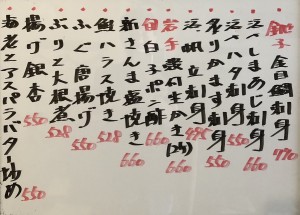 銚子 金目鯛刺身 770
活〆しまあじ刺身 660
活〆ハタ刺身 660
炙りかます刺身 550
活 帆立 刺身 495
岩手 殻付生かき(2ケ) 660
自家製 白子ポン酢 660
新さんま塩焼き 660
鮭ハラス焼き 528
ふぐ唐揚げ 550
ぶりと大根煮 528
揚げ銀杏 550
海老とアスパラバター炒め 550